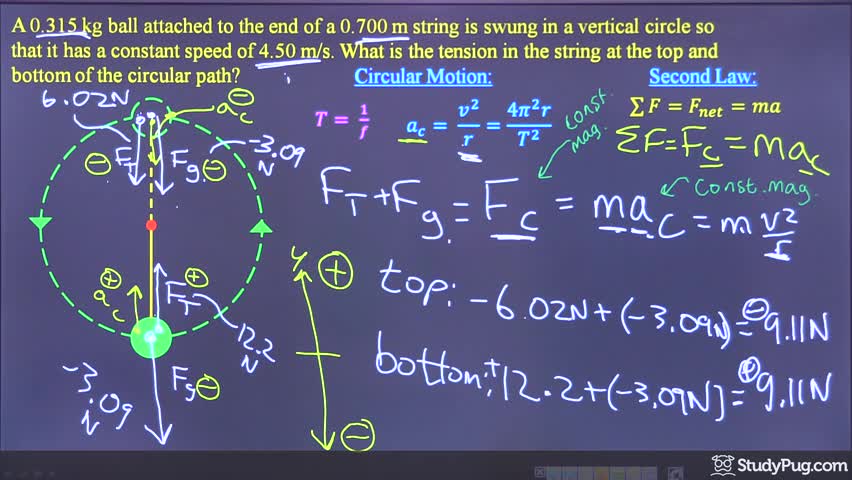 A 0.315 kg ball attached to the end of a 0.700 m string is swung in a vertical circle so
that it has a constant speed of 4.50 m/s. What is the tension in the string at the top and
bottom of the circular path?
Circular Motion:
Second Law:
T = 1/f
a_c = v²/r = 4π²r/T²
ΣF = F_net = ma
ΣF = F_c = ma_c
const. mag.
const. mag.
F_T + F_g = F_c = ma_c = m v²/r
top: -6.02N + (-3.09N) = ⊖9.11N
bottom: +12.2 + (-3.09N) = ⊕9.11N
6.02N
⊖ a_c
⊖ F_T
F_g ⊖
-3.09 N
⊕ a_c
⊕ F_T
12.2 N
F_g ⊖
-3.09 N
y ⊕
⊖
StudyPug.com